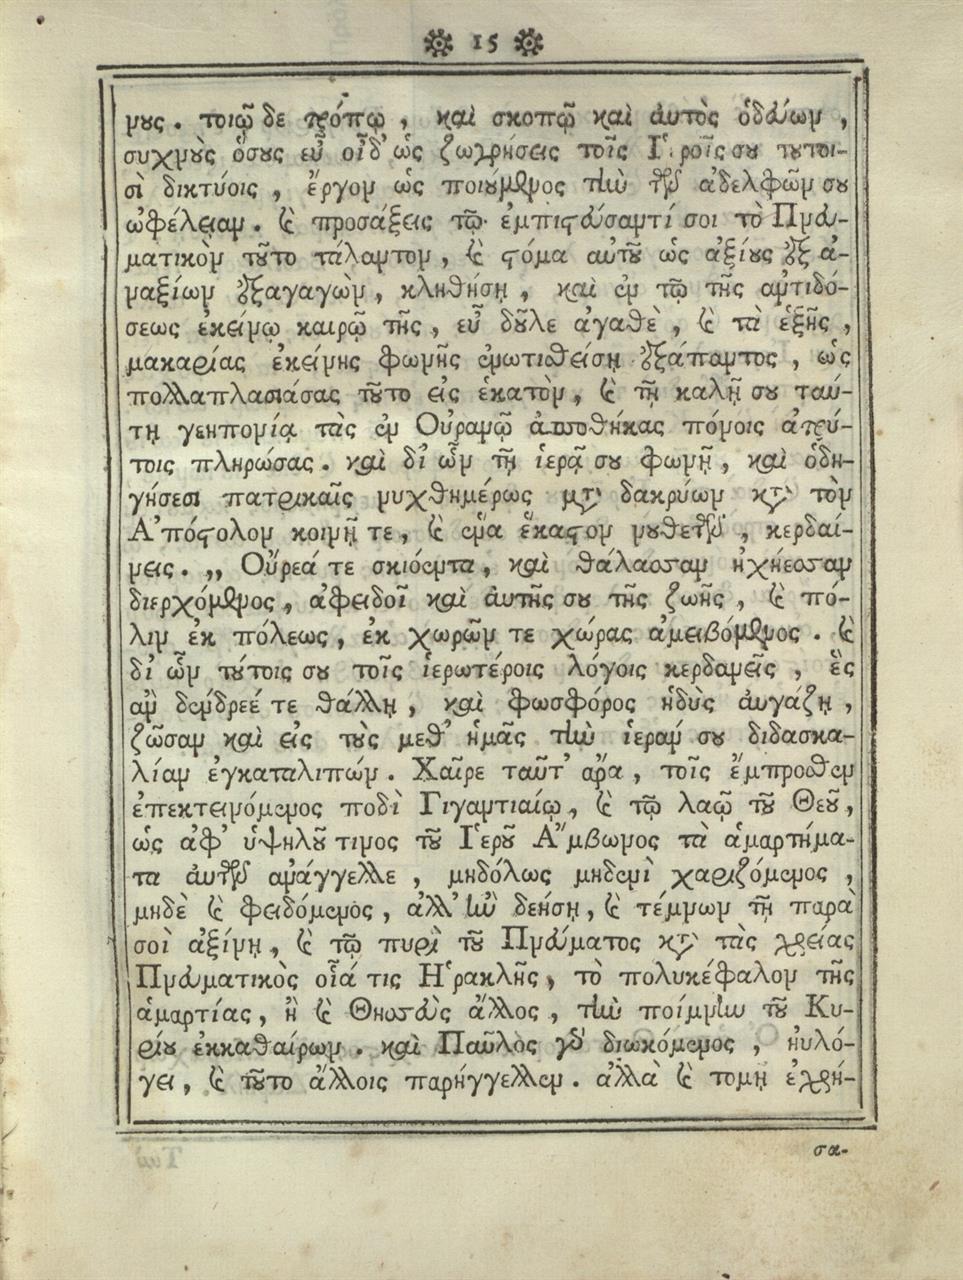 15
νους. τοιῷδε τρόπῳ, καὶ σκοπῷ καὶ αὐτὸς ὁδεύων,
συχνοὺς ὅσους εὖ οἶδ' ὡς ζωγρήσεις τοῖς Ἱεροῖς σου τουτοι-
σὶ δικτύοις, ἔργον ὡς ποιούμενος τὴν τῶν ἀδελφῶν σου
ὠφέλειαν. καὶ προσάξεις τῷ ἐμπιστεύσαντί σοι τὸ Πνευ-
ματικὸν τοῦτο τάλαντον, καὶ στόμα αὐτοῦ ὡς ἀξίους ἐξ ἀ-
ναξίων ἐξαγαγὼν, κληθήσῃ, καὶ ἐν τῷ τῆς ἀντιδό-
σεως ἐκείνῳ καιρῷ τῆς, εὖ δοῦλε ἀγαθὲ, καὶ τὰ ἑξῆς,
μακαρίας ἐκείνης φωνῆς ἐνωτισθείσῃ ἐξάπαντος, ὡς
πολλαπλασιάσας τοῦτο εἰς ἑκατὸν, καὶ τῇ καλῇ σου ταύ-
τῃ γεηπονίᾳ τὰς ἐν Οὐρανῷ ἀποθήκας πόνοις ἀτρύ-
τοις πληρώσας. καὶ δι' ὧν τῇ ἱερᾷ σου φωνῇ, καὶ ὁδη-
γήσεσι πατρικαῖς νυχθημέρως μετὰ δακρύων κατὰ τὸν
Ἀπόστολον κοινῇ τε, καὶ ἕνα ἕκαστον νουθετῶν, κερδαί-
νεις. „ Οὔρεά τε σκιόεντα, καὶ θάλασσαν ἠχήεσσαν
διερχόμενος, ἀφειδοῖ καὶ αὐτῆς σου τῆς ζωῆς, καὶ πό-
λιν ἐκ πόλεως, ἐκ χωρῶν τε χώρας ἀμειβόμενος. καὶ
δι' ὧν τούτοις σου τοῖς ἱερωτέροις λόγοις κερδανεῖς, ἕς
αν δένδρεέ τε θάλλῃ, καὶ φωσφόρος ἡδὺς αὐγάζῃ,
ζῶσαν καὶ εἰς τοὺς μεθ' ἡμᾶς τὴν ἱεράν σου διδασκα-
λίαν ἐγκαταλιπών. Χαῖρε ταῦτ' ἄρα, τοῖς ἔμπροσθεν
ἐπεκτεινόμενος ποδὶ Γιγαντιαίῳ, καὶ τῷ λαῷ τοῦ Θεοῦ,
ὡς ἀφ' ὑψηλοῦ τινος τοῦ Ἱεροῦ Ἄμβωνος τὰ ἁμαρτήμα-
τα αὐτῶν ἀνάγγελλε, μηδόλως μηδενὶ χαριζόμενος,
μηδὲ καὶ φειδόμενὸς, ἀλλ' ἢν δεήσῃ, καὶ τέμνων τῇ παρὰ
σοὶ ἀξίνῃ, καὶ τῷ πυρὶ τοῦ Πνεύματος κατὰ τὰς χρείας
Πνευματικὸς οἷά τις Ἡρακλῆς, τὸ πολυκέφαλον τῆς
ἁμαρτίας, ἢ καὶ Θησεὺς ἄλλος, τὴν ποίμνην τοῦ Κυ-
ρίου ἐκκαθαίρων. καὶ Παῦλὸς γοῦν διωκόμενος, ηὐλό-
γει, καὶ τοῦτο ἄλλοις παρήγγελλεν. ἀλλὰ καὶ τομῇ ἐχρή-
σα-